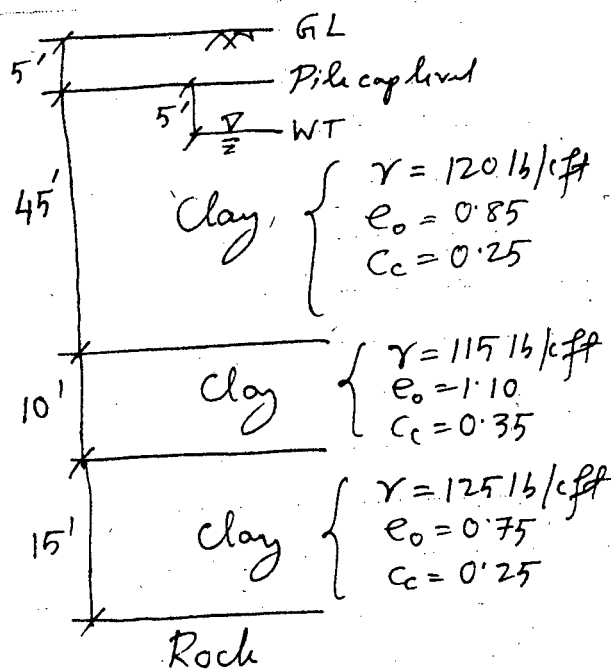 GL
5'
Pile cap level
5'
WT
45'
Clay
γ = 120 lb/cft
e₀ = 0.85
Cc = 0.25
10'
Clay
γ = 115 lb/cft
e₀ = 1.10
Cc = 0.35
15'
Clay
γ = 125 lb/cft
e₀ = 0.75
Cc = 0.25
Rock